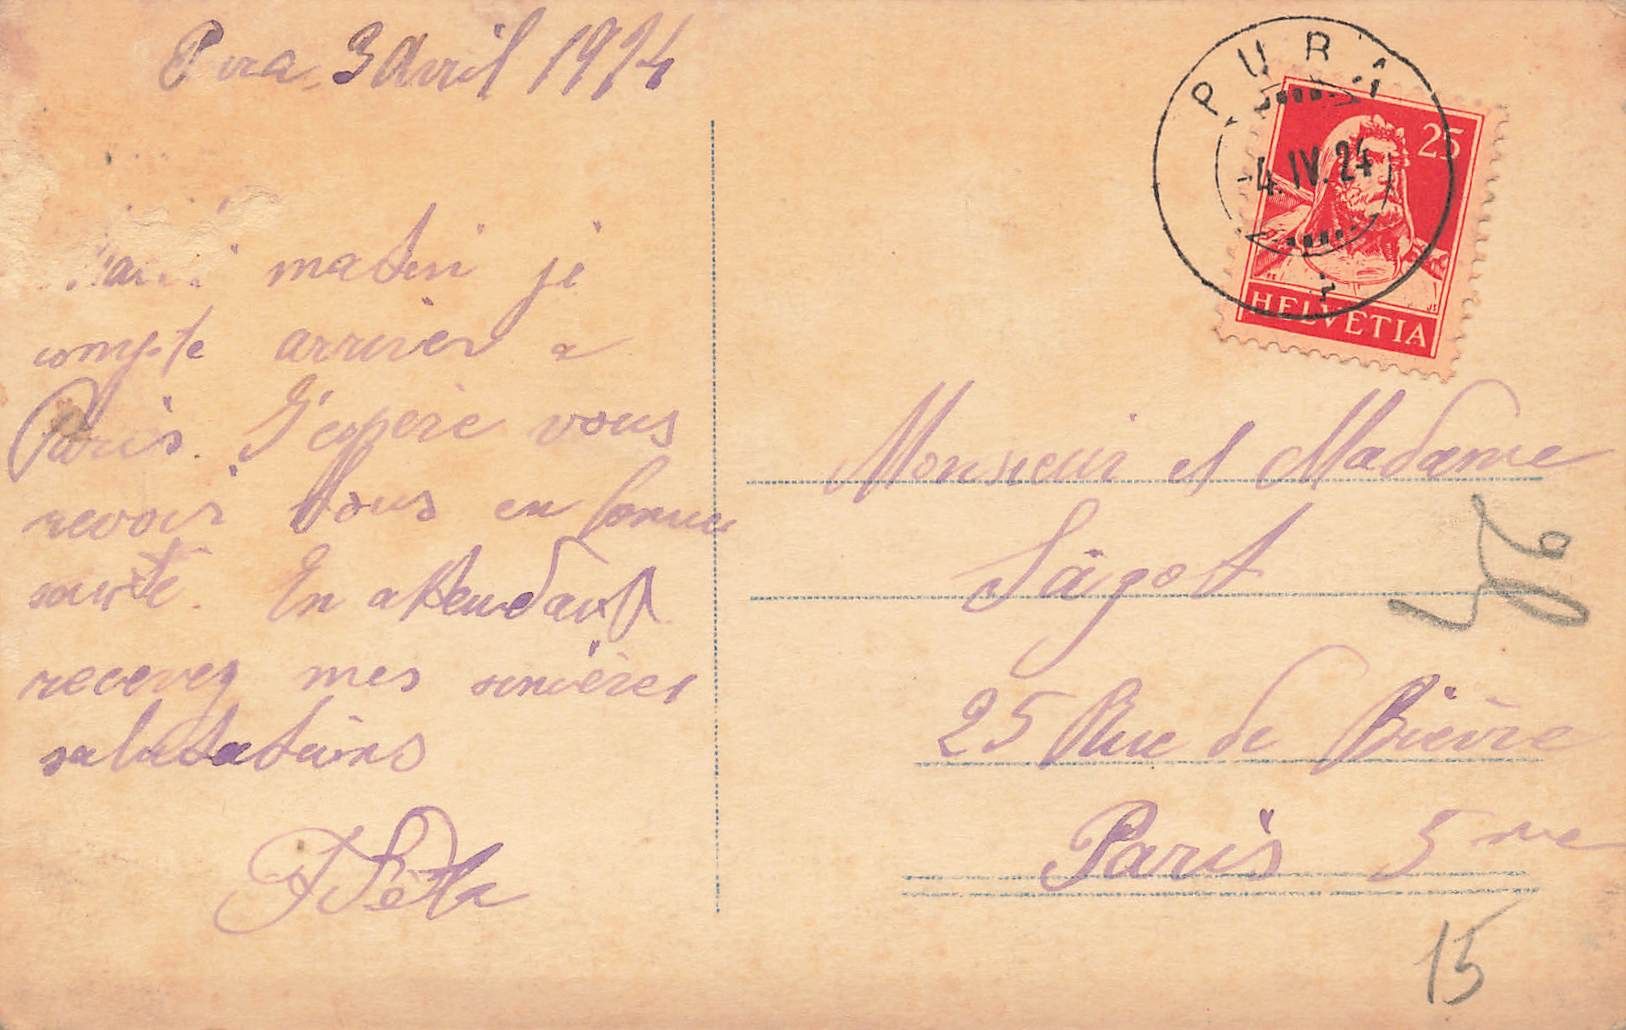 Pura 3 Avril 1924
matin je
compte arriver a
Paris. J'espère vous
revoir tous en bonne
santé. En attendant
recevez mes sincères
salutations
PURA
4.IV.24
25
HELVETIA
Monsieur et Madame
Sägot
25 Rue de Bièvre
Paris 5me
15